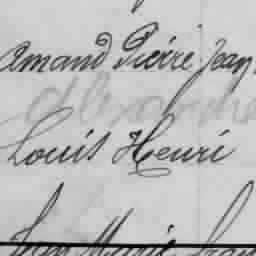 Amand Pierre Jean
Alexandre
Louis Henri
Jean Marie